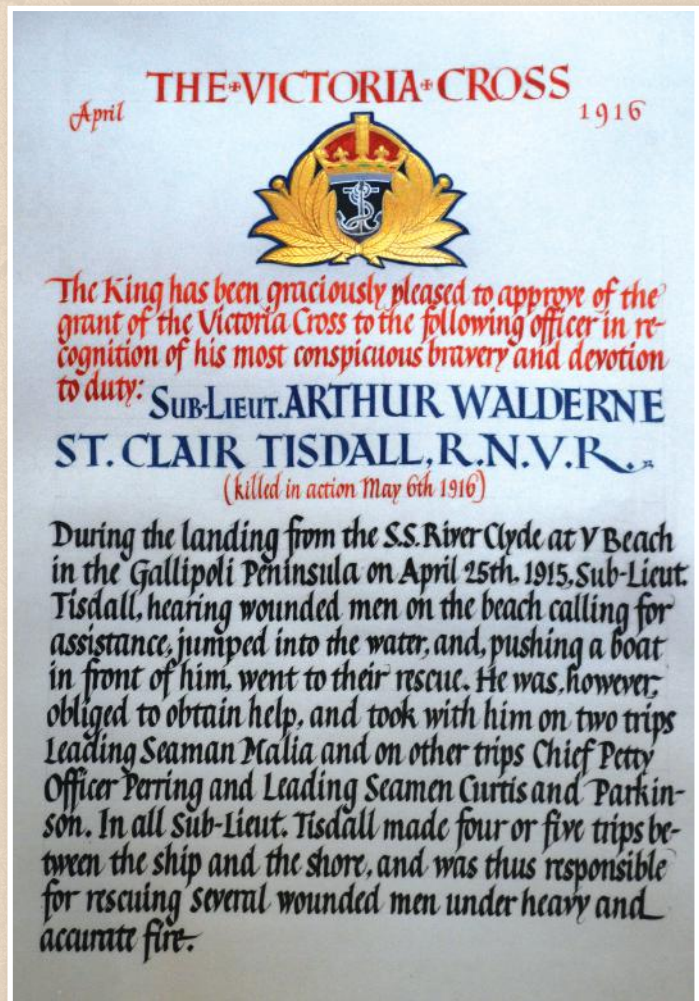 THE VICTORIA CROSS
April 1916
The King has been graciously pleased to approve of the
grant of the Victoria Cross to the following officer in re-
cognition of his most conspicuous bravery and devotion
to duty: SUB-LIEUT. ARTHUR WALDERNE
ST. CLAIR TISDALL, R.N.V.R.
(killed in action May 6th 1916)
During the landing from the S.S. River Clyde at V Beach
in the Gallipoli Peninsula on April 25th. 1915, Sub-Lieut.
Tisdall, hearing wounded men on the beach calling for
assistance, jumped into the water, and, pushing a boat
in front of him, went to their rescue. He was, however,
obliged to obtain help, and took with him on two trips
Leading Seaman Malia and on other trips Chief Petty
Officer Perring and Leading Seamen Curtis and Parkin-
son. In all Sub-Lieut. Tisdall made four or five trips be-
tween the ship and the shore, and was thus responsible
for rescuing several wounded men under heavy and
accurate fire.